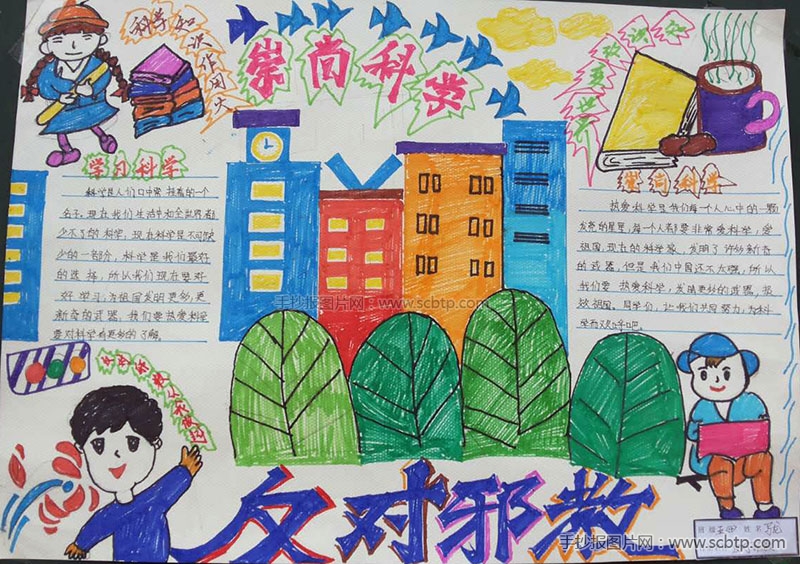 科学知识
崇尚科学
学习科学
科学是人们口中常挂着的一个
名字。现在我们生活中和全世界都
少不了的科学。现在科学是不可缺
少的一部分。科学是我们最好
的选择，所以我们现在要好
好学习，为祖国发明更多，更
新奇的武器。我们要热爱科学
要对科学有更多的了解。
崇尚科学
热爱科学是我们每一个人心中的一颗
发亮的星星，每一个人都要非常爱科学，爱
祖国。现在的科学家，发明了许多新奇
的武器，但是我们中国还不太强，所以
我们要热爱科学，发明更好的武器，热
爱祖国。同学们，让我们共同努力，为科
学而欢呼吧。
手抄报图片网：www.scbtp.com
反对邪教
手抄报图片网：www.scbtp.com